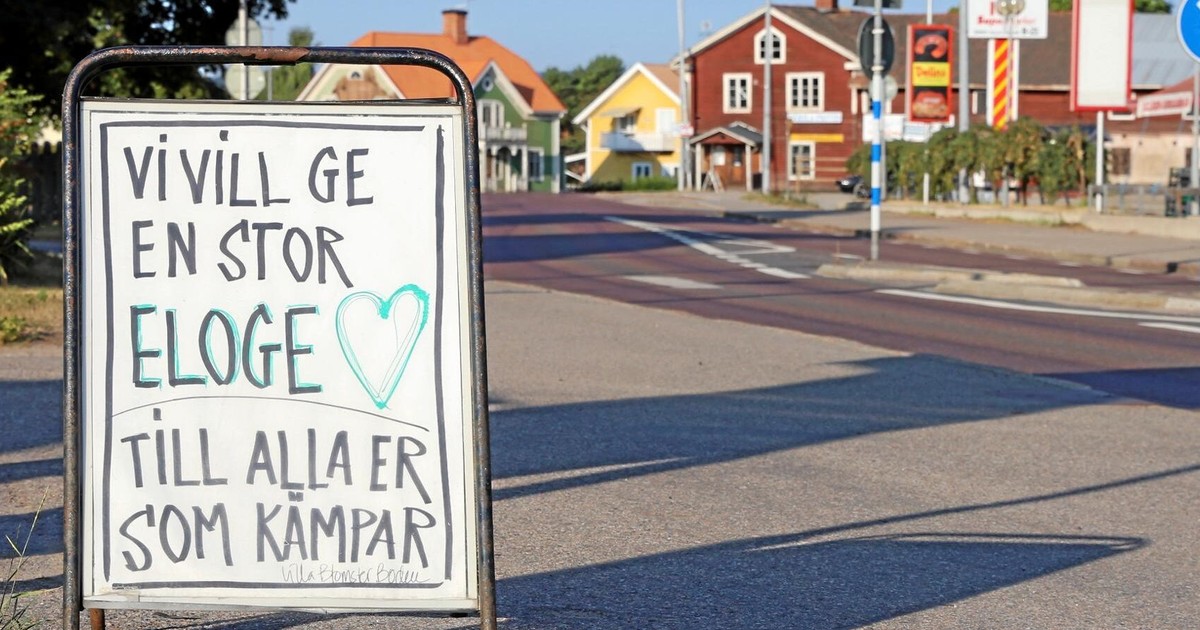 VI VILL GE
EN STOR
ELOGE
TILL ALLA ER
SOM KÄMPAR
Lilla Blomster Boden